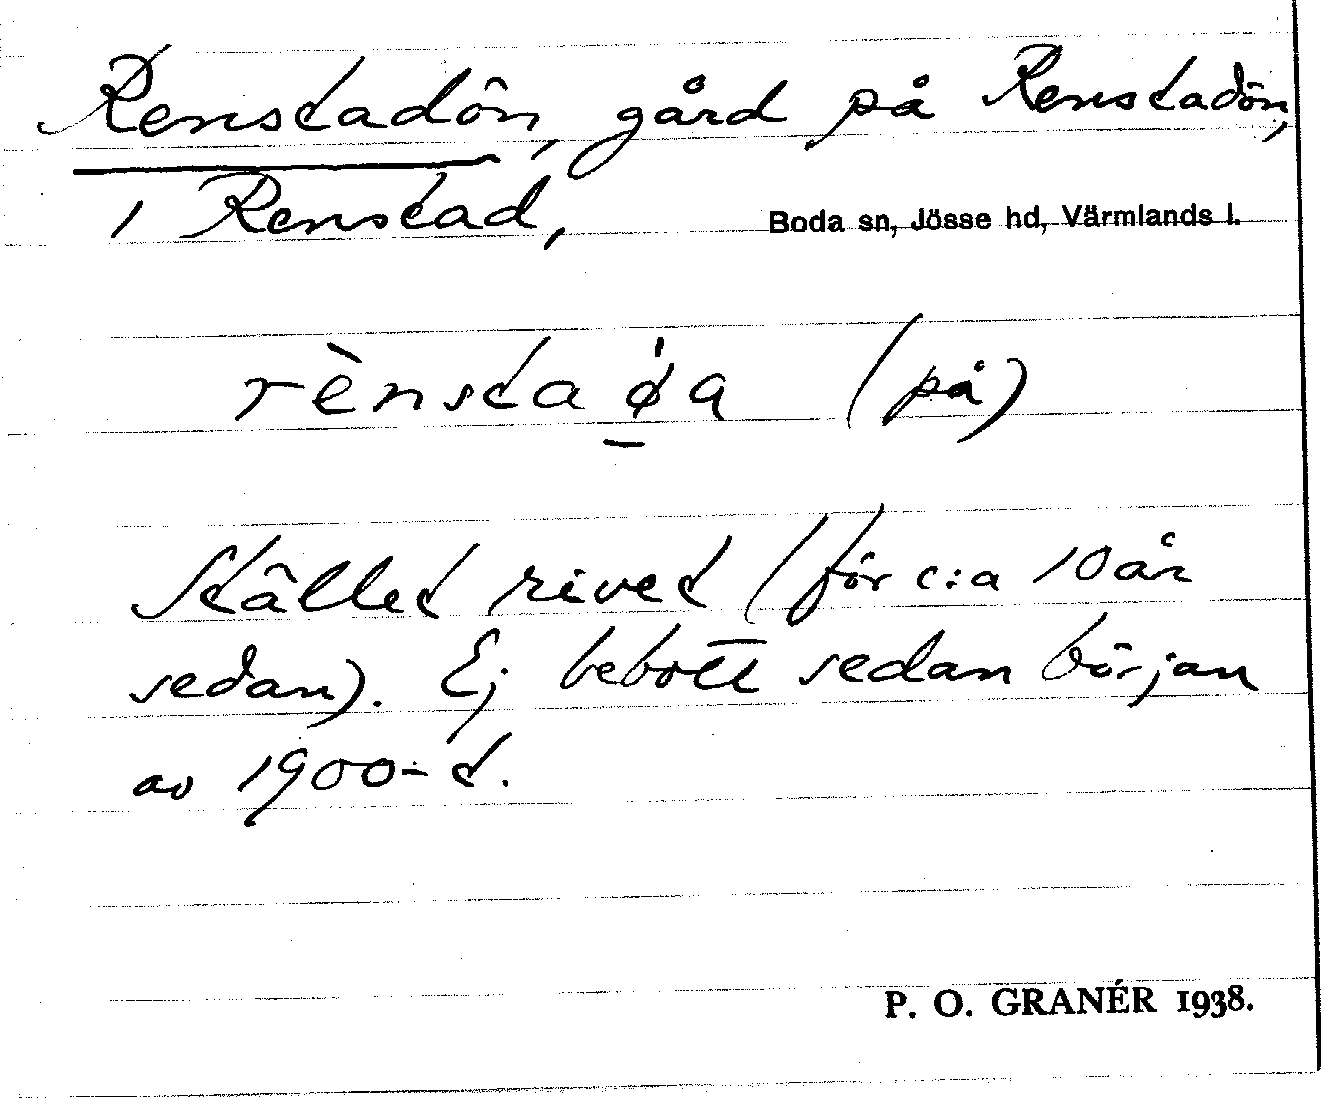 Renstadön, gård på Renstadön,
1 Renstad, Boda sn, Jösse hd, Värmlands l.
rènstaø̠̍a (på)
Stället rivet (för c:a 10 år
sedan). Ej bebott sedan början
av 1900-t.
P. O. GRANÉR 1938.